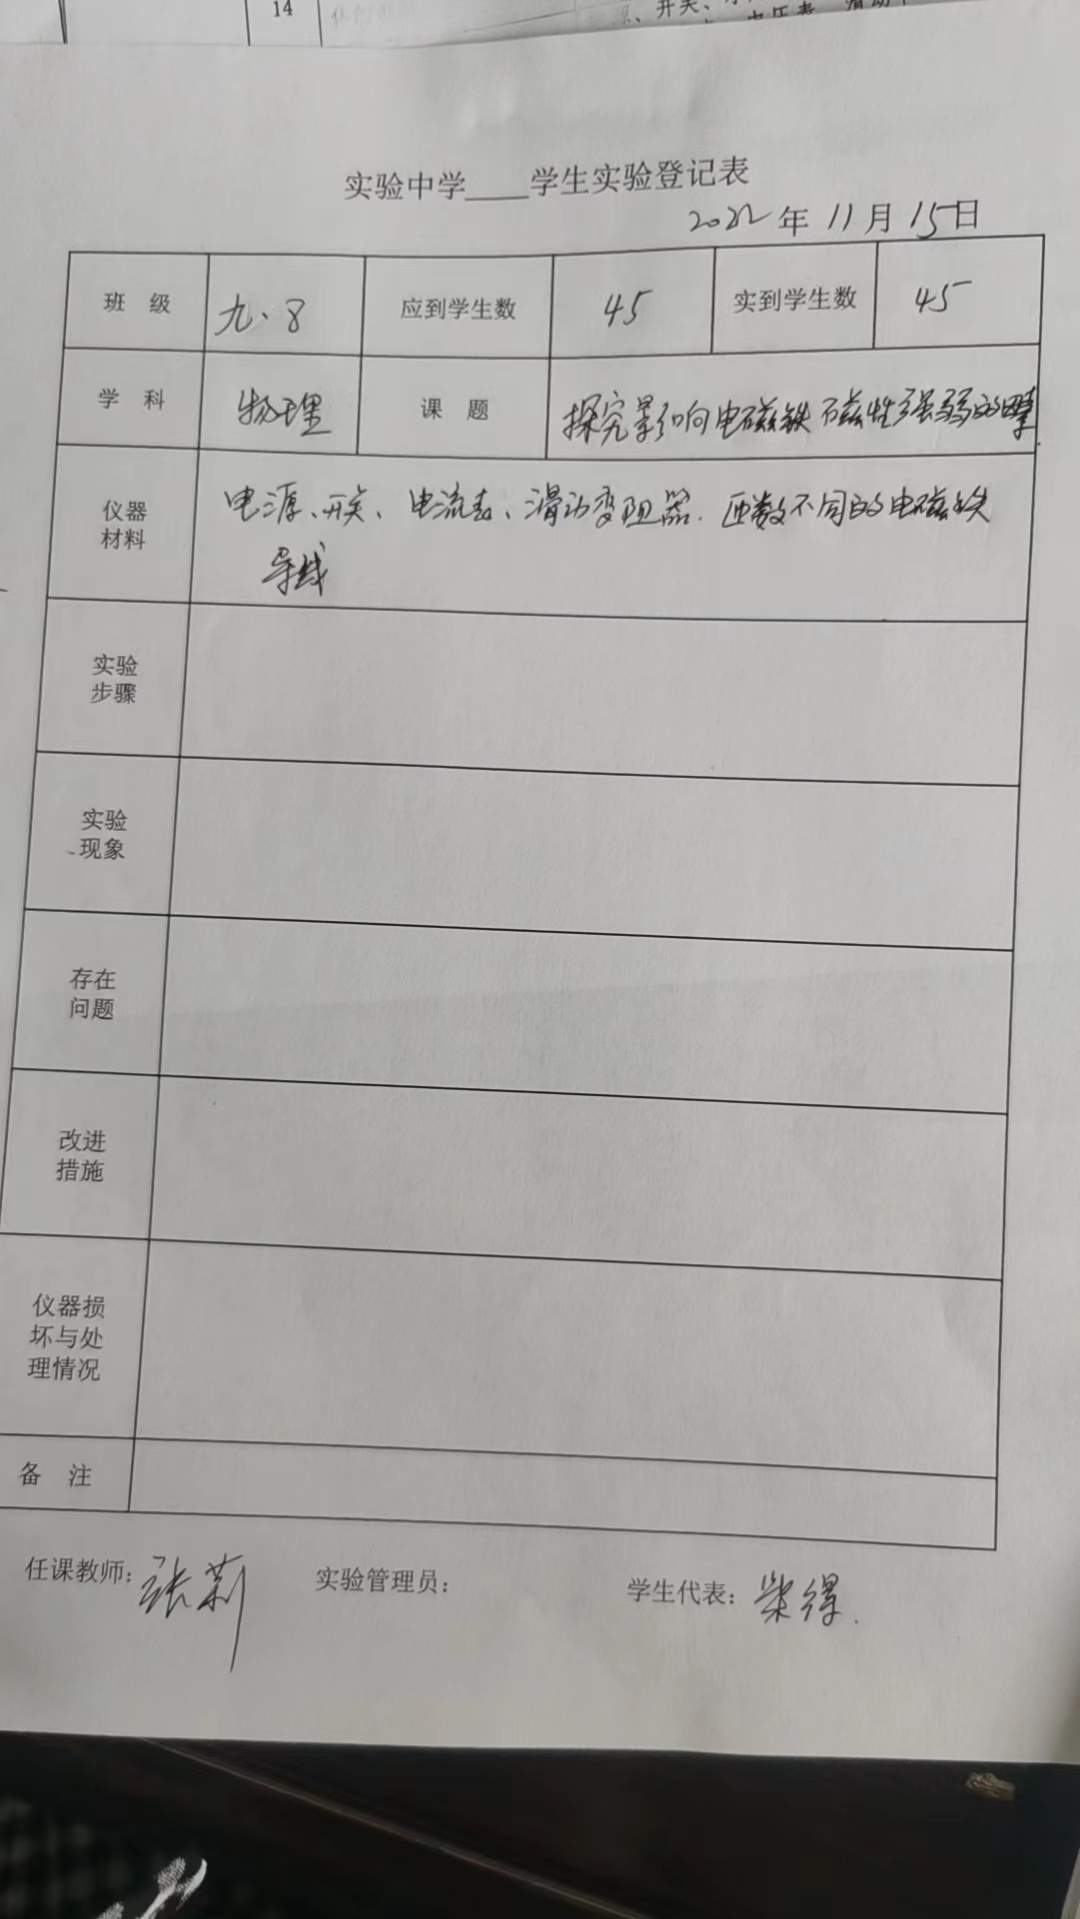 14
实验中学____学生实验登记表
2022年11月15日
班 级 九.8 应到学生数 45 实到学生数 45
学 科 物理 课 题 探究影响电磁铁磁性强弱的
仪器
材料
电源、开关、电流表、滑动变阻器. 匝数不同的电磁铁
导线
实验
步骤
实验
现象
存在
问题
改进
措施
仪器损
坏与处
理情况
备 注
任课教师: 张莉 实验管理员: 学生代表: 柴得.